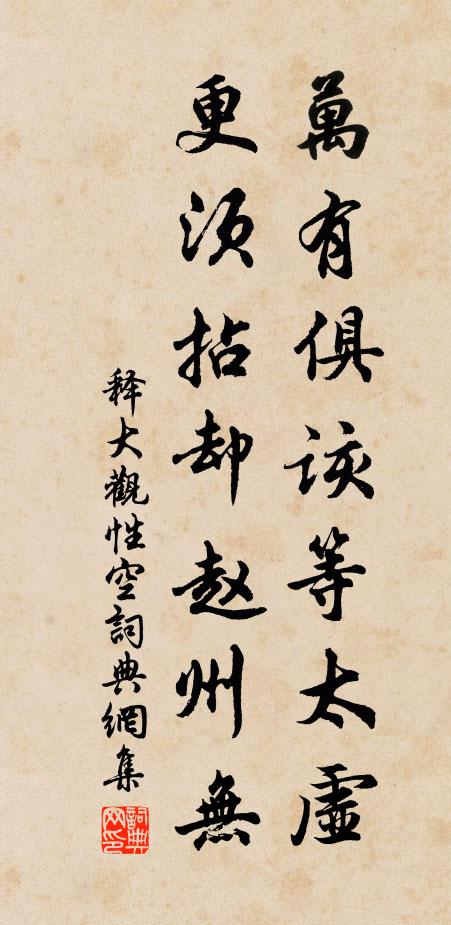 萬有俱該等太虛
更須拈却赵州無
释大觀性空詞典網集
詞典网印